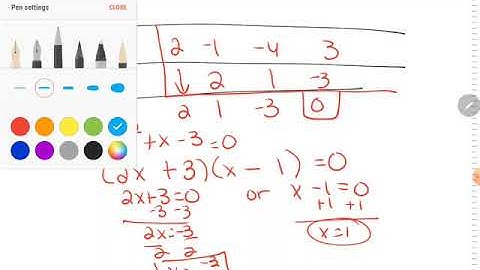 Pen settings CLOSE
2 -1 -4 3
↓ 2 1 -3
2 1 -3 0
+x-3=0
(2x+3)(x-1)=0
2x+3=0 or x-1=0
-3 -3 +1 +1
2x=-3 x=1
2 2
-3